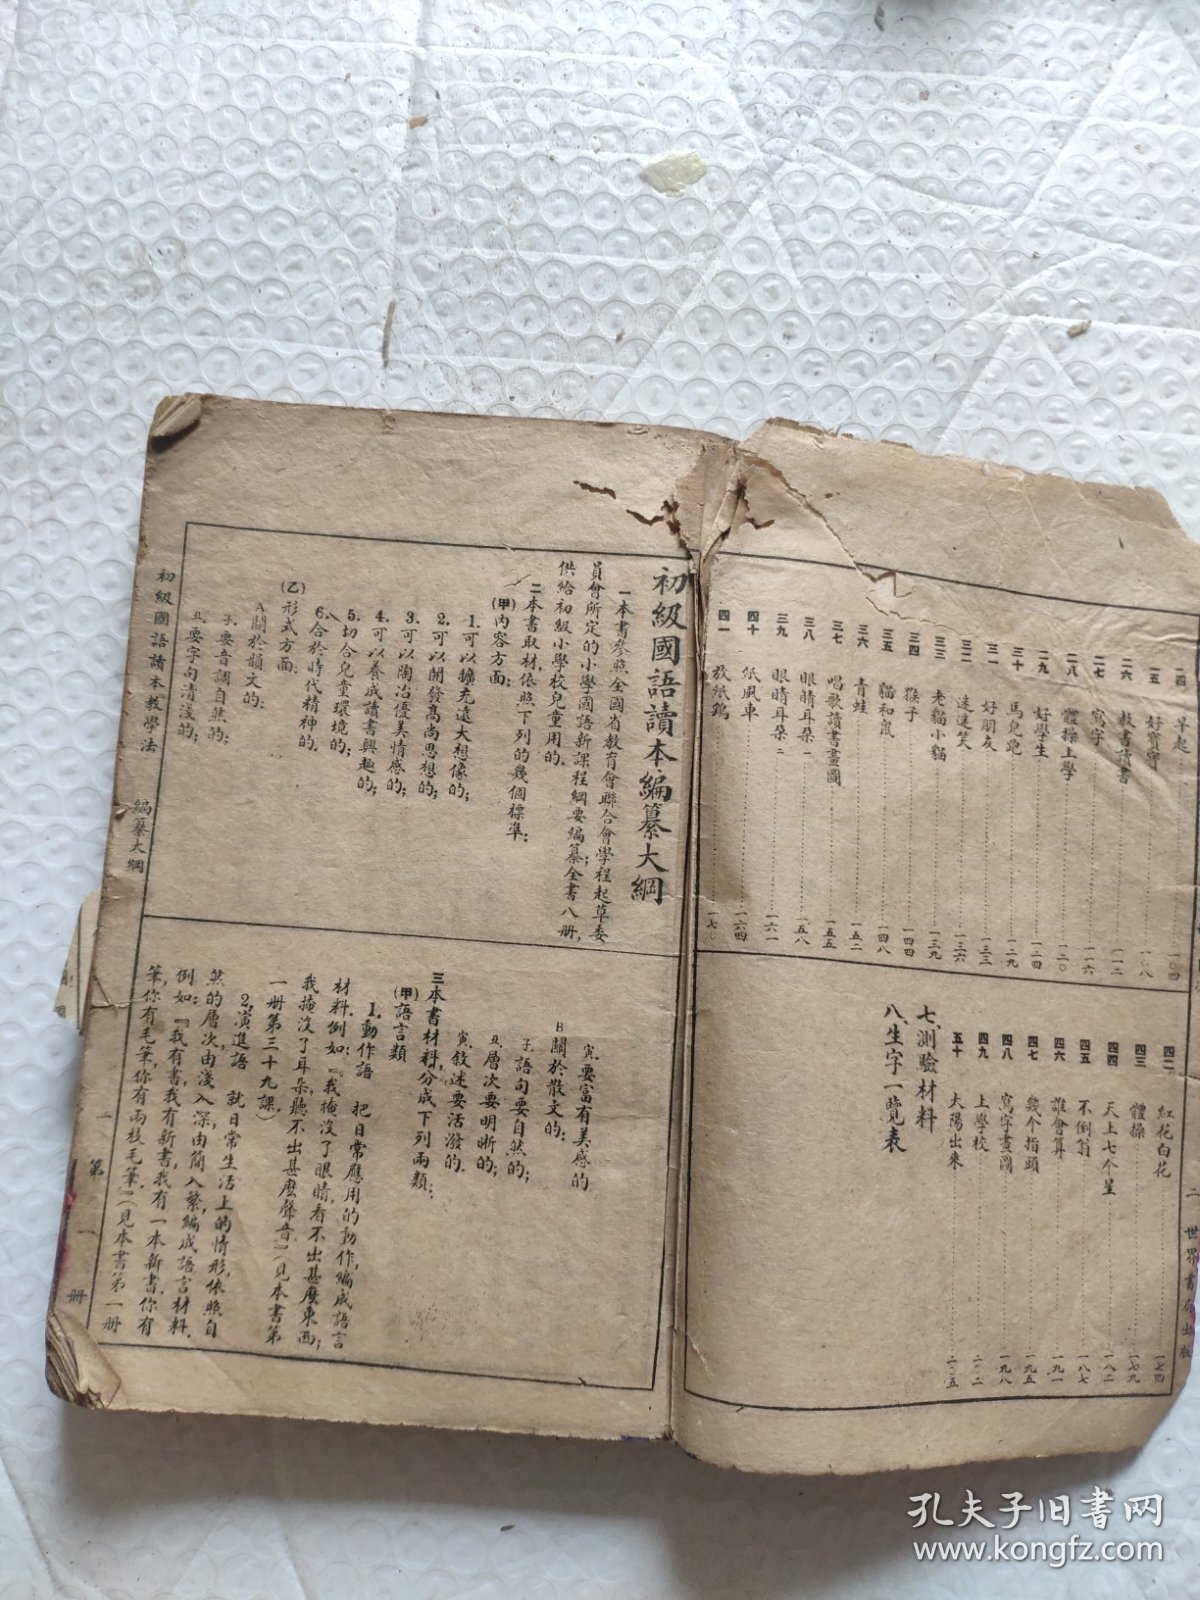 二四 早起 一〇四
二五 好寶寶 一〇八
二六 教書讀書 一一二
二七 寫字 一一六
二八 體操上學 一二〇
二九 好學生 一二四
三十 馬兒跑 一二九
三一 好朋友 一三三
三二 迷迷笑 一三六
三三 老貓小貓 一三九
三四 猴子 一四四
三五 貓和鼠 一四八
三六 青蛙 一五二
三七 唱歌讀書畫圖 一五五
三八 眼睛耳朵一 一五八
三九 眼睛耳朵二 一六一
四十 紙風車 一六四
四一 放紙鷂
四二 紅花白花 一七四
四三 體操 一七九
四四 天上七个星 一八二
四五 不倒翁 一八七
四六 誰會算 一九一
四七 幾个指頭 一九五
四八 寫字畫圖 一九八
四九 上學校 二〇二
五十 太陽出來 二〇五
七、測驗材料
八、生字一覽表
二 世界書局出版
初級國語讀本編纂大綱
一 本書參照全國省教育會聯合會學程起草委
員會所定的小學國語新課程綱要編纂；全書八册，
供給初級小學校兒童用的．
二 本書取材，依照下列的幾個標準：
(甲)內容方面：
1.可以擴充遠大想像的；
2.可以開發高尚思想的；
3.可以陶冶優美情感的；
4.可以養成讀書興趣的；
5.切合兒童環境的；
6.合於時代精神的．
(乙)形式方面：
A關於韻文的：
子、要音調自然的；
丑、要字句清淺的；
寅、要富有美感的
B關於散文的：
子、語句要自然的；
丑、層次要明晰的；
寅、敘述要活潑的．
三 本書材料，分成下列兩類：
(甲)語言類
1.動作語 把日常應用的動作，編成語言
材料．例如：『我掩沒了眼睛，看不出甚麼東西；
我掩沒了耳朵，聽不出甚麼聲音』(見本書第
一册第三十九課)
2.演進語 就日常生活上的情形，依照自
然的層次，由淺入深，由簡入繁，編成語言材料．
例如：『我有書，我有新書，我有一本新書．你有
筆，你有毛筆，你有兩枝毛筆．』(見本書第一册
初級國語讀本教學法 編纂大綱 一 第一册
孔夫子旧书网
www.kongfz.com